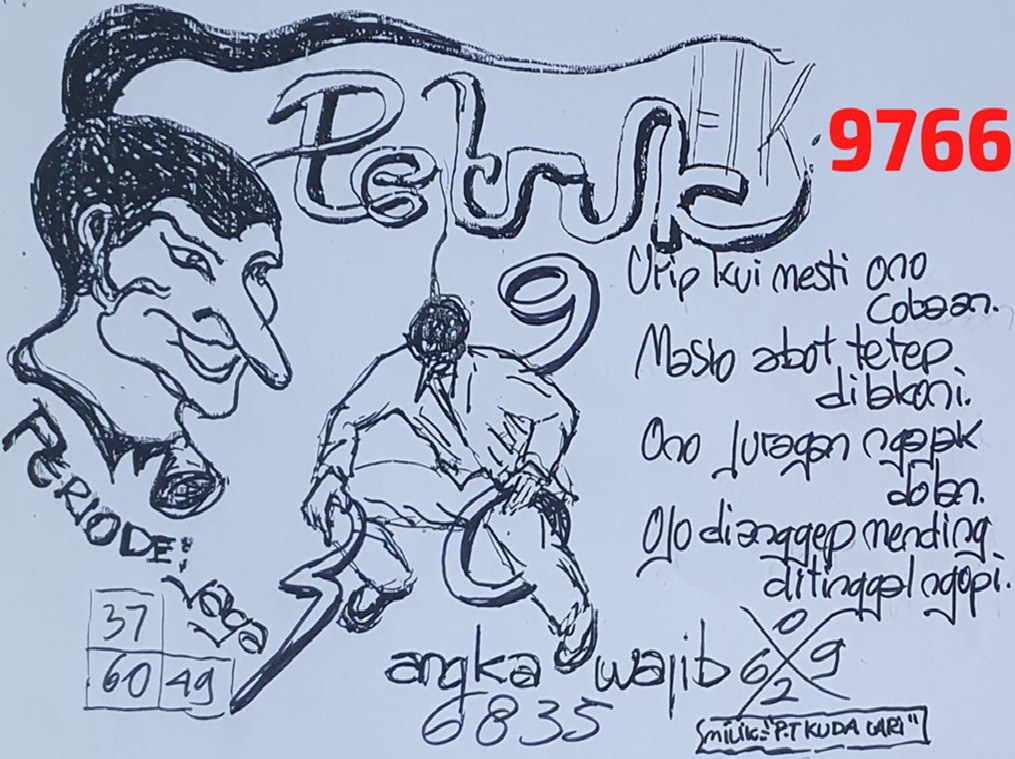 Petruk
HK.
9766
9
Urip kui mesti ono
cobaan.
Masio abot tetep
dilakoni.
Ono juragan ngajak
dolan.
Ojo dianggep mending
ditinggal ngopi.
PERIODE:
37
60 49
angka wajib
6835
0
6 9
2
MILIK="P.T KUDA LARI"